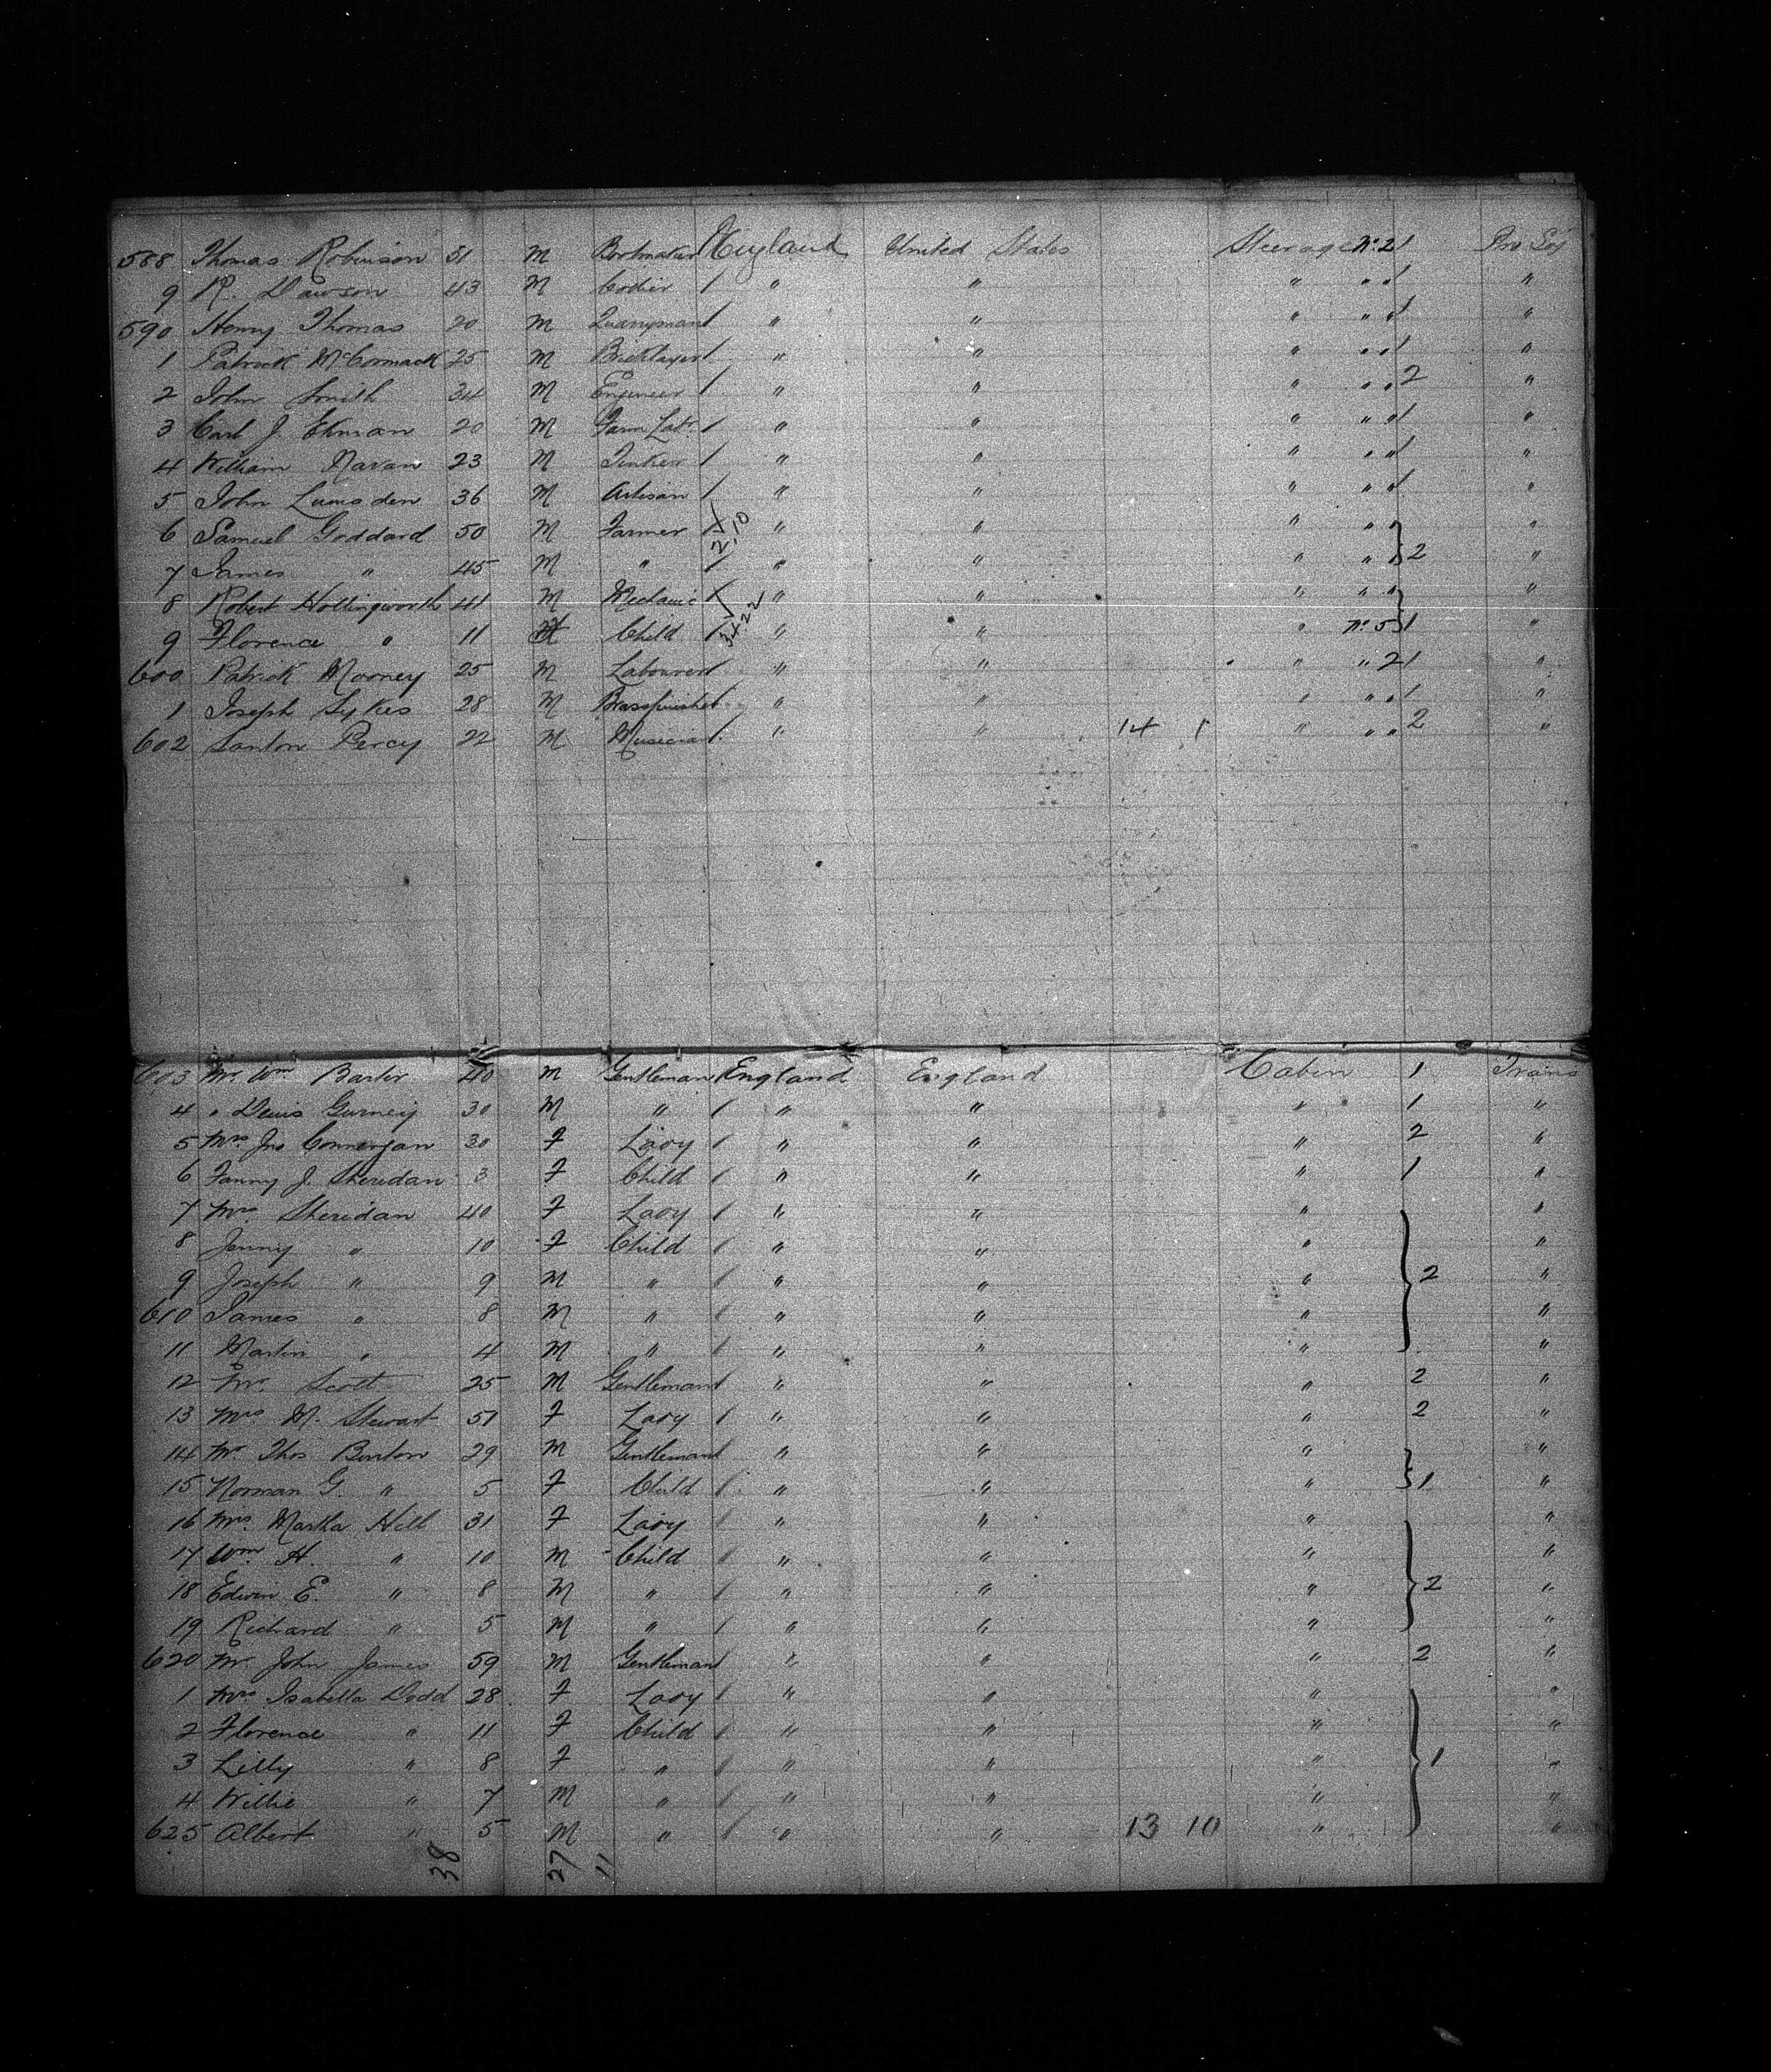 588 Thomas Robinson 51 M Bootmaker 1 England United States Steerage No 2 1 Pro Soj
9 R. Dawson 43 M 1 " " " " " 1 "
590 Henry Thomas 20 M Quarryman 1 " " " " " 1 "
1 Patrick McCormack 25 M Bricklayer 1 " " " " " 1 "
2 John Smith 34 M Engineer 1 " " " " " 2 "
3 Carl J. Ekman 20 M Farm Labr. 1 " " " " " 1 "
4 William Navan 23 M Tinker 1 " " " " " 1 "
5 John Lumsden 36 M Artisan 1 " " " " " 1 "
6 Samuel Goddard 50 M Farmer 1 " " " " " "
7 James " 45 M " 1 " " " " " 2 "
8 Robert Hollingworth 41 M Mechanic 1 " " " " " "
9 Florence " 11 Child 1 " " " No 5 1 "
600 Patrick Mooney 25 M Labourer 1 " " " " 2 1 "
1 Joseph Sykes 28 M Brassfinisher 1 " " " " " 1 "
602 Santon Percy 22 M Musician 1 " " 14 1 " " " 2 "
603 Mr. Wm Barter 40 M Gentleman 1 England England Cabin 1 Trans
4 " Denis Gurney 30 M " 1 " " " 1 "
5 Mrs Jno Connerjan 30 F Lady 1 " " " 2 "
6 Fanny J. Sheridan 3 F Child 1 " " " 1 "
7 Mrs. Sheridan 40 F Lady 1 " " " "
8 Jenny " 10 F Child 1 " " " "
9 Joseph " 9 M " 1 " " " 2 "
610 James " 8 M " 1 " " " "
11 Martin " 4 M " 1 " " " "
12 Mr. Scott 25 M Gentleman 1 " " " 2 "
13 Mrs M. Stewart 51 F Lady 1 " " " 2 "
14 Mr Thos Burton 29 M Gentleman 1 " " " "
15 Norman G. " 5 F Child 1 " " " 1 "
16 Mrs. Martha Hill 31 F Lady 1 " " " "
17 Wm H. " 10 M Child 1 " " " "
18 Edwin E. " 8 M " 1 " " " 2 "
19 Richard " 5 M " 1 " " " "
620 Mr. John James 59 M Gentleman 1 " " " 2 "
1 Mrs Isabella Dodd 28 F Lady 1 " " " "
2 Florence " 11 F Child 1 " " " "
3 Lilly " 8 F " 1 " " " 1 "
4 Willie " 7 M " 1 " " " "
625 Albert " 5 M " 1 " " 13 10 " "
38 27 11